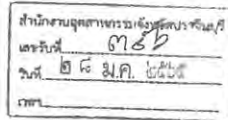 สำนักงานอุตสาหกรรมจังหวัดปราจีนบุรี
เลขรับที่ ๓๔๖
วันที่ ๒๘ ม.ค. ๒๕๖๕
เวลา